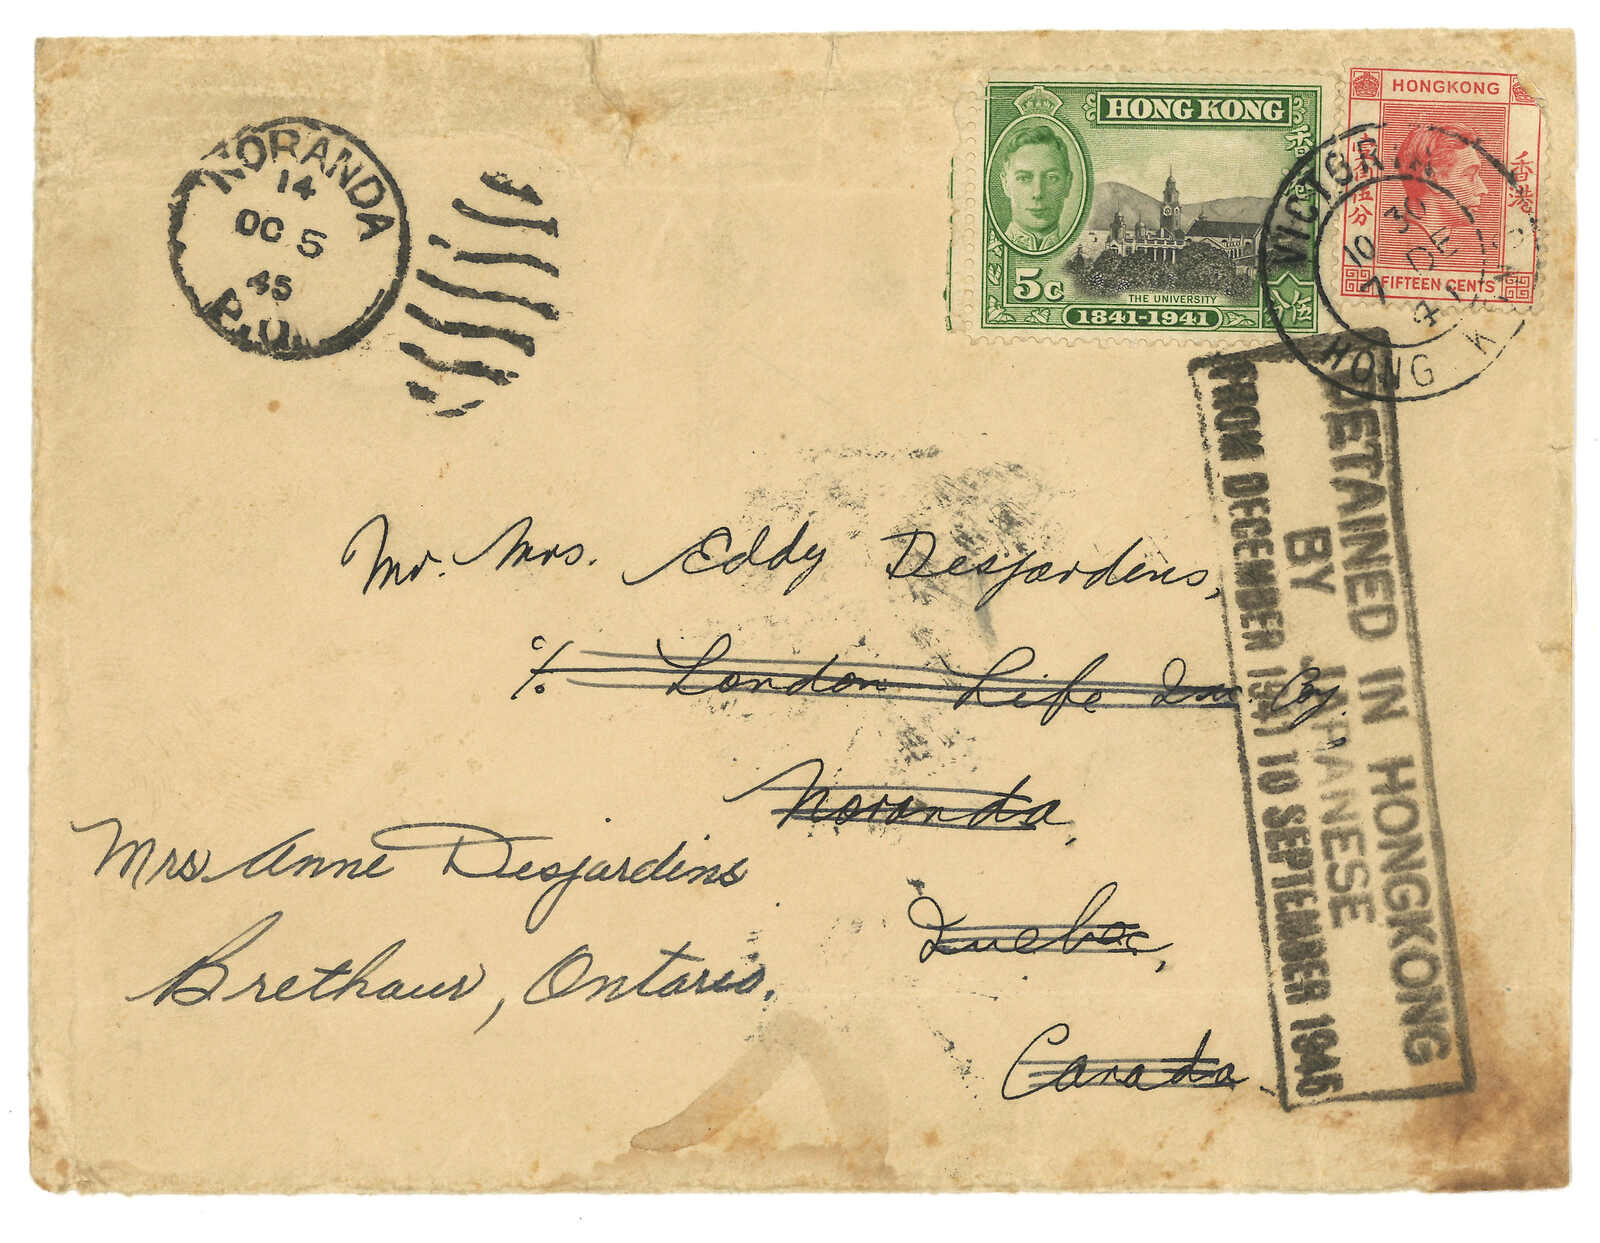 NORANDA
14
OC 5
45
P.Q.
HONG KONG
香港
5c
THE UNIVERSITY
1841-1941
伍
HONGKONG
香港
壹毫伍分
FIFTEEN CENTS
VICTORIA
10 30
7 DE
41
HONG K
DETAINED IN HONGKONG
BY JAPANESE
FROM DECEMBER 1941 TO SEPTEMBER 1945
Mr. Mrs. Eddy Desjardins,
℅ London Life Ins Coy.
Noranda,
Quebec,
Canada
Mrs Anne Desjardins
Brethour, Ontario.